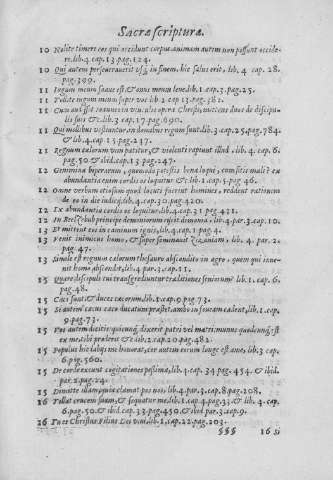 Sacræ scripturæ.
10 Nolite timere eos qui occidunt corpus animam autem non possunt occide-
re, lib.4 cap.13 pag.124.
10 Qui autem perseverauerit vsq; in finem, hic saluus erit, lib.4 cap.28.
pag.399.
11 Iugum meum suaue est, & onus meum leue. lib.1 cap.3. pag.25.
11 Tollite iugum meum super vos lib.2 cap.13. pag.382.
11 Cum audisset Ioannes in vinculis opera Christi, mittens duos de discipu-
lis suis &c. lib.3 cap.17. pag.690.
11 Qui mollibus vestiuntur, in domibus regum sunt. lib.3 cap.25. pag.784.
& lib.4 cap.15 pag.247.
11 Regnum cælorum vim patitur, & violenti rapiunt illud, lib.4 cap.6.
pag.50 & ibid. cap.13 pag.247.
12 Gemmina viperarum, quomodo potestis bona loqui, cum sitis mali? ex
abundantia enim cordis os loquitur &c lib.1 cap.5 pag.46.
12 Omne verbum otiosum quod locuti fuerint homines, reddent rationem
de eo in die iudicij. lib.4 cap.30. pag.420.
12 Ex abundantia cordis os loquitur. lib.4 cap.31 pag.431.
12 In Beelzebub principe demoniorum eijcit dæmonia, lib.4 par.3. cap.10.
13 Et mittent eos in caminum ignis, lib.4 cap.1 pag.4.
13 Venit inimicus homo, & super seminauit Zizaniam, lib.4 par.2.
pag.47.
13 Simile est regnum cælorum thesauro abscondito in agro, quem qui inue-
nit homo, abscondit, lib.4 par.3. cap.11.
15 Quare discipuli tui transgrediuntur traditiones seniorum? lib.1 cap.6.
pag.48.
15 Cæci sunt, & duces cæcorum, lib.1 cap.9 pag.73.
15 Si autem cæcus cæco ducatum præstet, ambo in foueam cadent, lib.1 cap.
9 pag.73.
15 Vos autem dicitis: quicunq; dixerit patri vel matri, munus quodcunq; est
ex me, tibi proderit & c lib.2 cap.20 pag.482.
15 Populus hic labijs me honorat, cor autem eorum longe est a me, lib.3 cap.
6 pag.560.
15 De corde exeunt cogitationes pessimæ, lib.4 cap.34 pag.454. & ibid.
par.2 pag.24.
15 Dimitte illam, quia clamat post nos, lib.4 par.3. cap.8 pag.208.
16 Tollat crucem suam, & sequatur me. lib.1 cap.4 pag.33, & lib.4 cap.
6 pag.50 & ibid. cap.33 pag.450 & ibid par.3 cap.9.
16 Tu es Christus Filius Dei viui, lib.1 cap.22. pag.203.
§§§ 16 Si